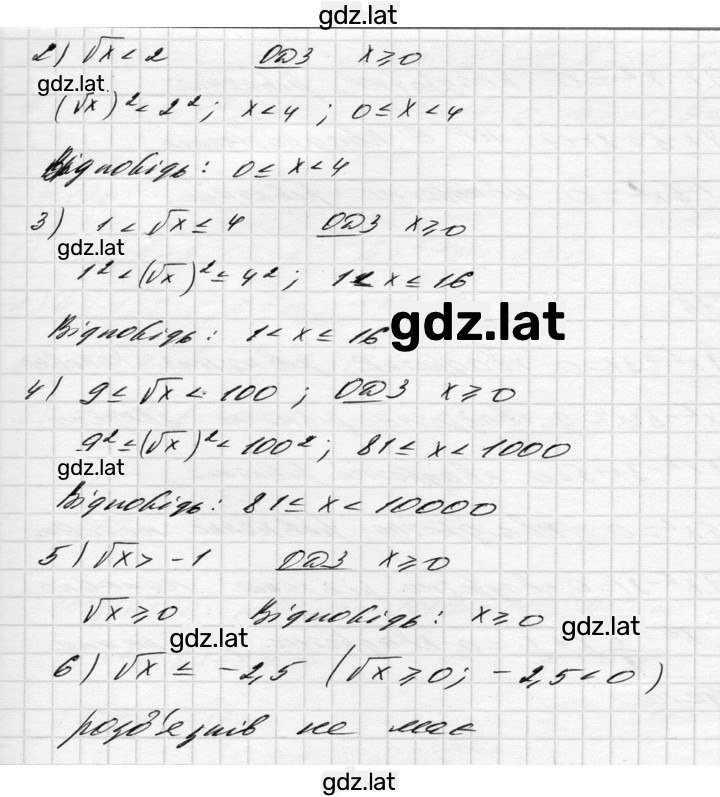 gdz.lat
2) √x < 2 ОДЗ x ≥ 0
gdz.lat
(√x)² < 2²; x < 4 ; 0 ≤ x < 4
Відповідь: 0 ≤ x < 4
3) 1 < √x ≤ 4 ОДЗ x ≥ 0
gdz.lat
1² < (√x)² ≤ 4²; 1 < x ≤ 16
gdz.lat
Відповідь: 1 < x ≤ 16
4) 9 ≤ √x < 100 ; ОДЗ x ≥ 0
9² ≤ (√x)² < 100²; 81 ≤ x < 1000
gdz.lat
Відповідь: 81 ≤ x < 10000
5) √x > -1 ОДЗ x ≥ 0
√x ≥ 0 Відповідь: x ≥ 0
gdz.lat gdz.lat
6) √x ≤ -2,5 (√x ≥ 0; -2,5 < 0)
розв'язків не має
gdz.lat